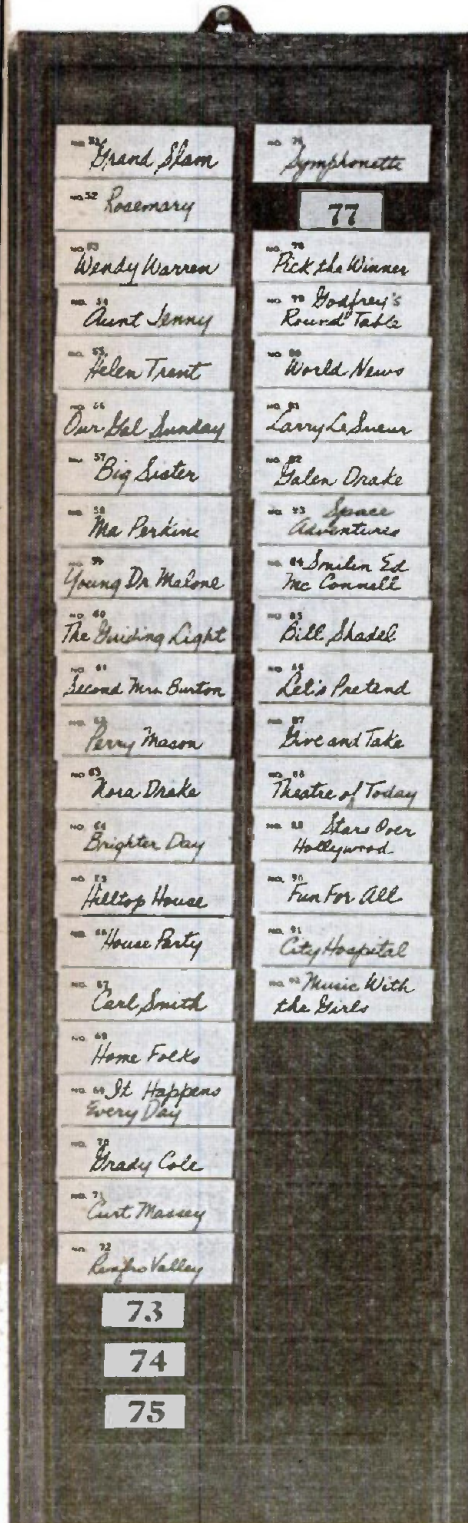 NO. 51 Grand Slam
NO. 52 Rosemary
NO. 53
Wendy Warren
NO. 54
Aunt Jenny
NO. 55
Helen Trent
NO. 56
Our Gal Sunday
NO. 57
Big Sister
NO. 58
Ma Perkins
NO. 59
Young Dr Malone
NO. 60
The Guiding Light
NO. 61
Second Mrs Burton
NO. 62
Perry Mason
NO. 63
Nora Drake
NO. 64
Brighter Day
NO. 65
Hilltop House
NO. 66
House Party
NO. 67
Carl Smith
NO. 68
Home Folks
NO. 69 It Happens
Every Day
NO. 70
Grady Cole
NO. 71
Curt Massey
NO. 72
Renfro Valley
73
74
75
NO. 76
Symphonette
77
NO. 78
Pick the Winner
NO. 79 Godfrey's
Round Table
NO. 80
World News
NO. 81
Larry LeSueur
NO. 82
Galen Drake
NO. 83 Space
Adventures
NO. 84 Smilin Ed
Mc Connell
NO. 85
Bill Shadel
NO. 86
Let's Pretend
NO. 87
Give and Take
NO. 88
Theatre of Today
NO. 89 Stars Over
Hollywood
NO. 90
Fun For All
NO. 91
City Hospital
NO. 92 Music With
the Girls